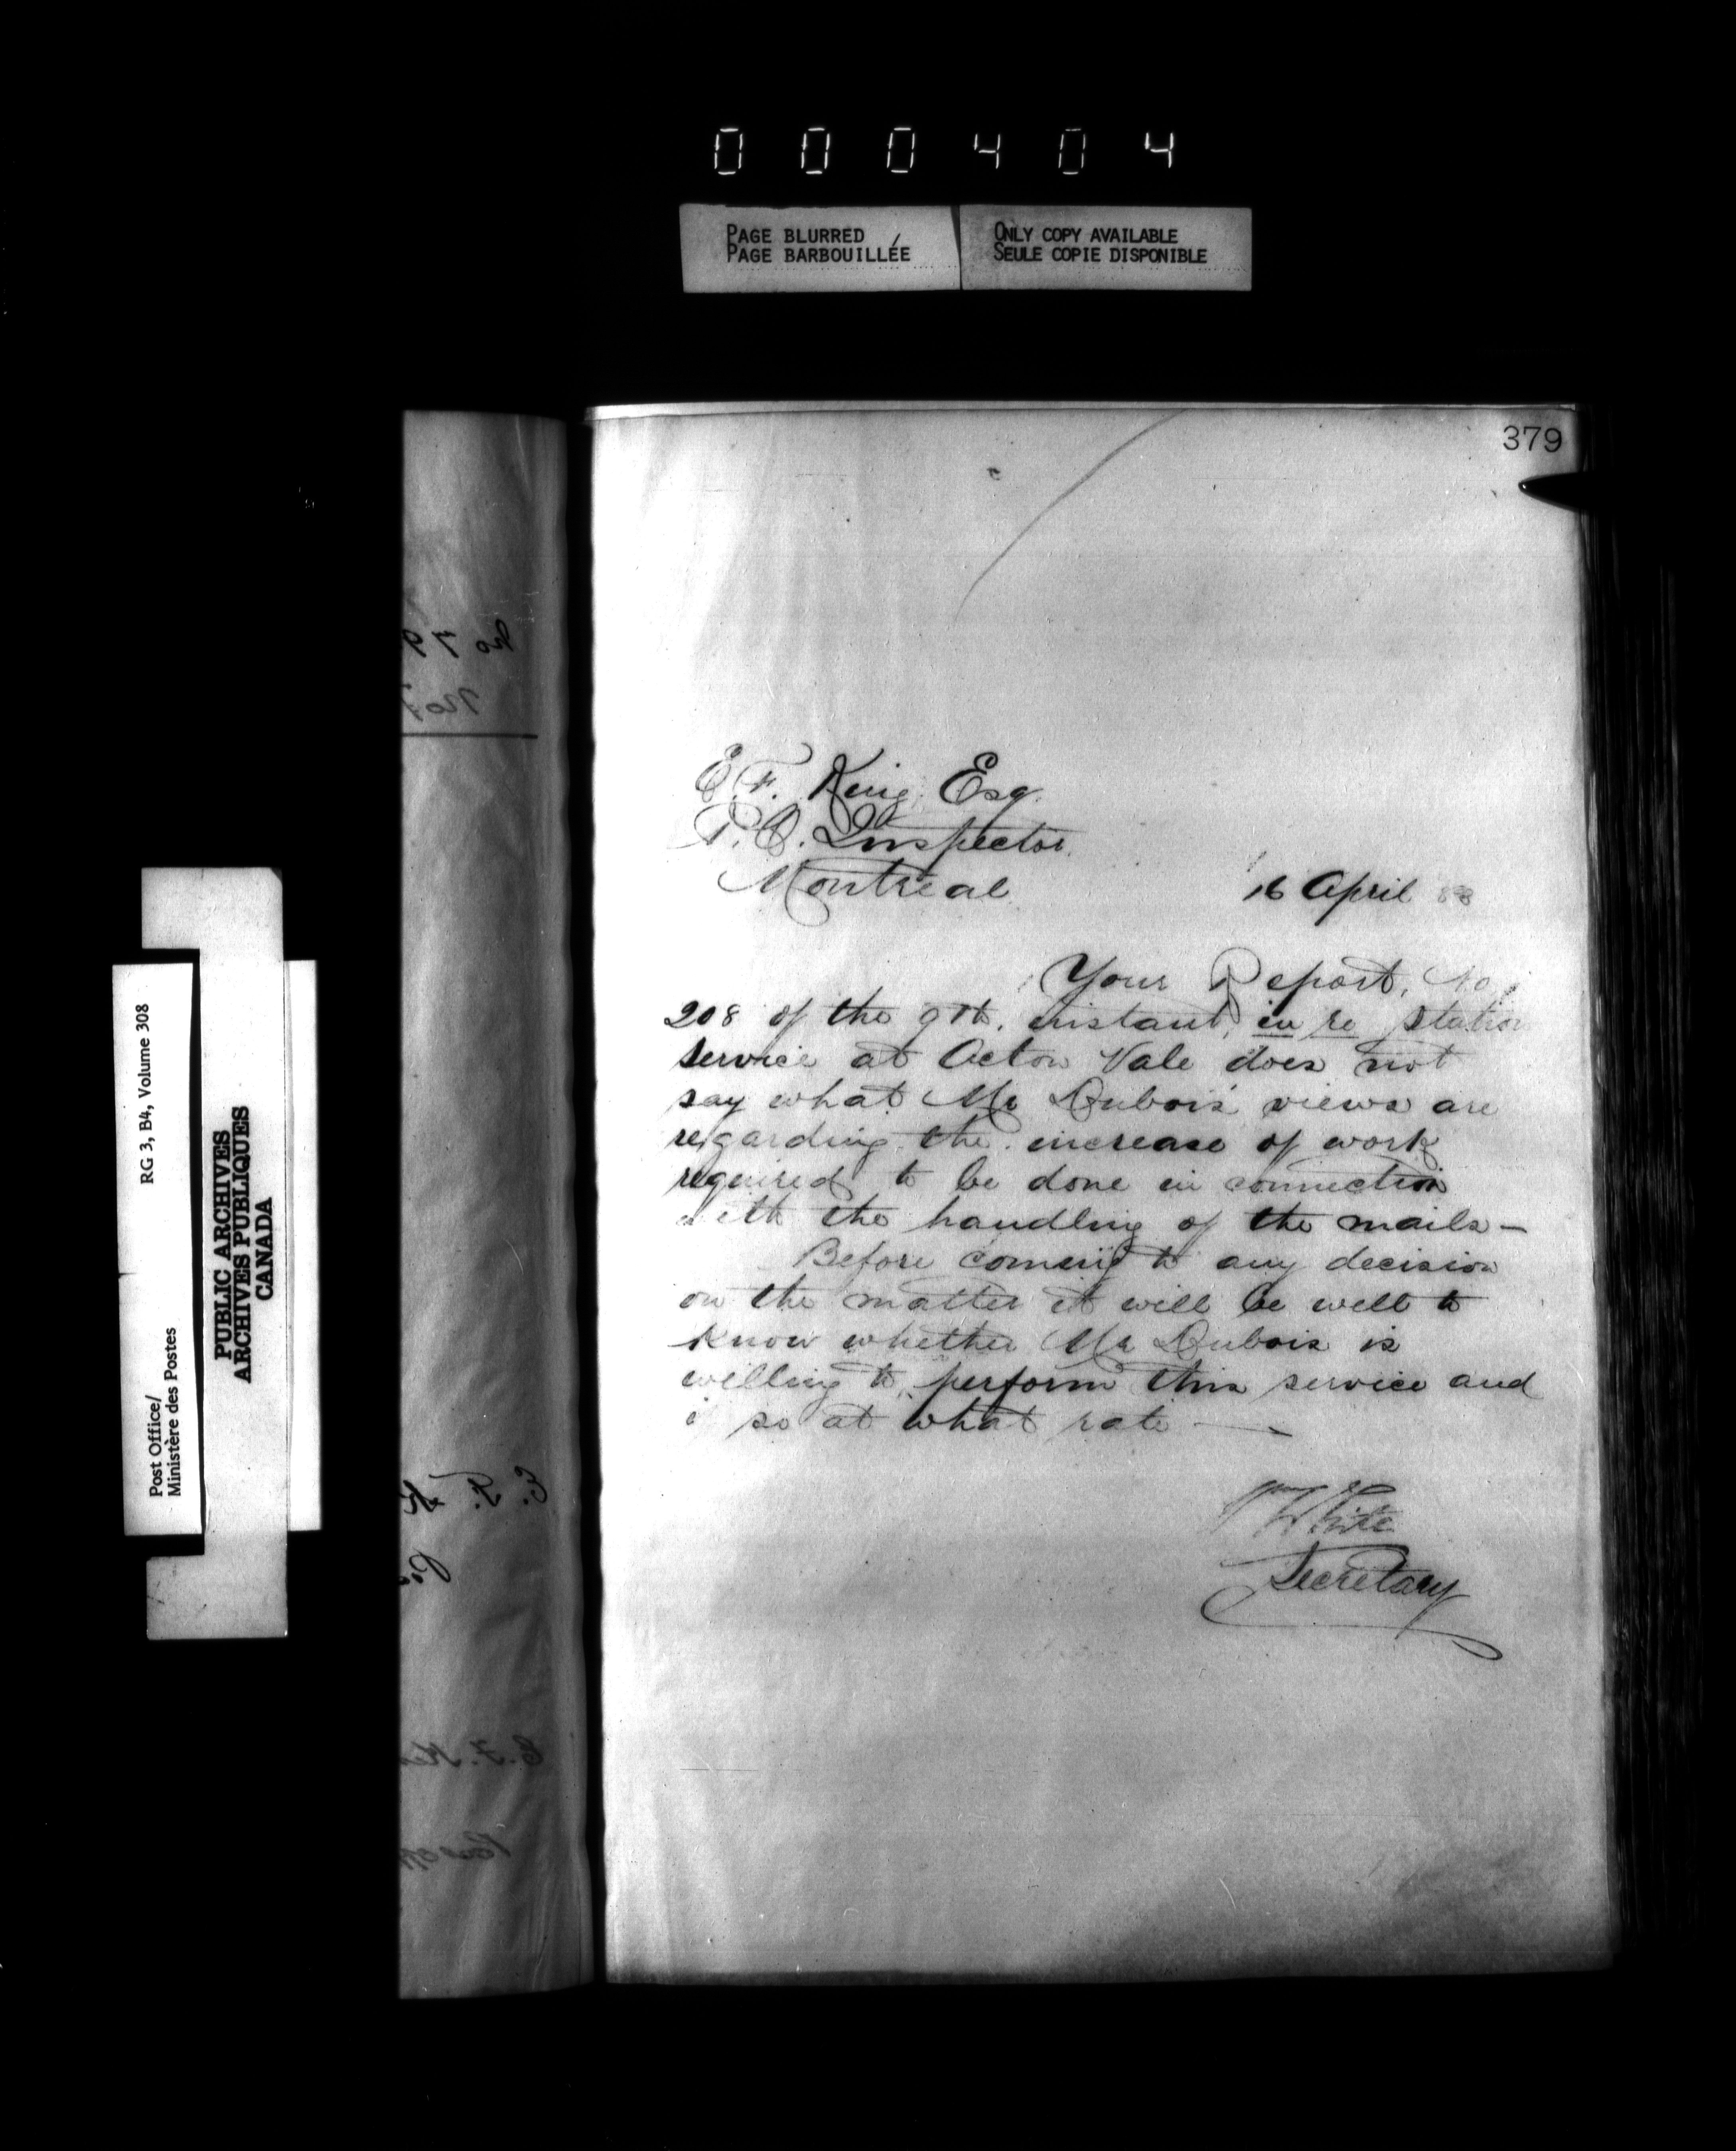 000404
PAGE BLURRED
PAGE BARBOUILLÉE
ONLY COPY AVAILABLE
SEULE COPIE DISPONIBLE
379
E. F. King Esq.
P.O. Inspector
Montreal
16 April 88
Your Report, No.
208 of the 9th. instant, in re station
service at Acton Vale does not
say what Mr Dubois' views are
regarding the increase of work
required to be done in connection
with the handling of the mails —
Before coming to any decision
on the matter it will be well to
know whether Mr Dubois is
willing to perform this service and
if so at what rate —
Wm White
Secretary
RG 3, B4, Volume 308
Post Office/
Ministère des Postes
PUBLIC ARCHIVES
ARCHIVES PUBLIQUES
CANADA